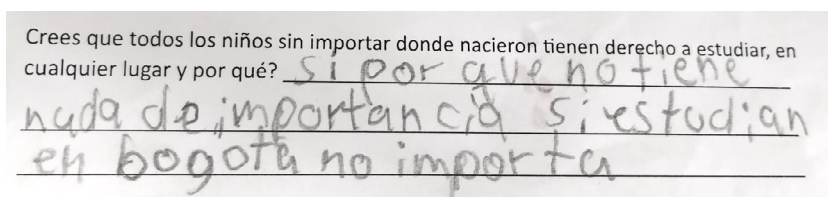 Crees que todos los niños sin importar donde nacieron tienen derecho a estudiar, en
cualquier lugar y por qué? si por que no tiene
nada de importancia si estudian
en bogota no importa